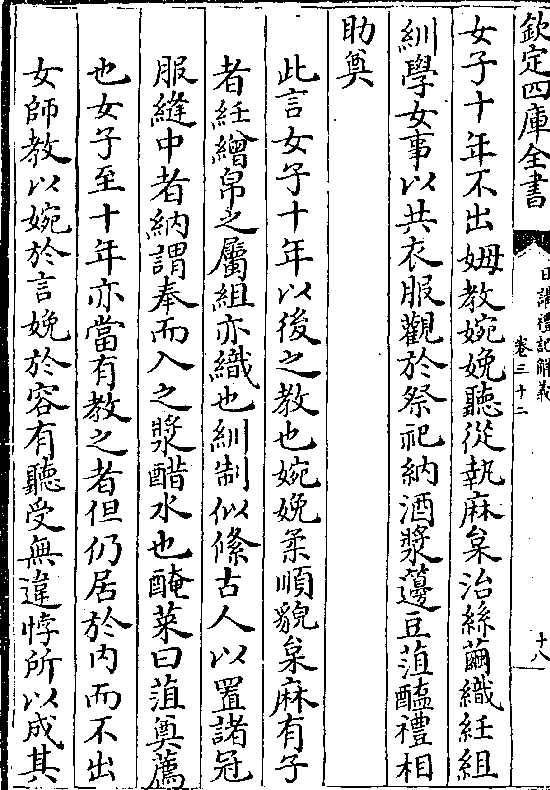 欽定四庫全書
日講禮記解義
卷三十二
十八
女子十年不出姆教婉娩聽從執麻枲治絲繭織紝組
紃學女事以共衣服觀於祭祀納酒漿籩豆菹醢禮相
助奠
此言女子十年以後之教也婉娩柔順貌枲麻有子
者紝繒帛之屬組亦織也紃制似絛古人以置諸冠
服縫中者納謂奉而入之漿醋水也醃菜曰菹奠薦
也女子至十年亦當有教之者但仍居於內而不出
女師教以婉於言娩於容有聽受無違悖所以成其